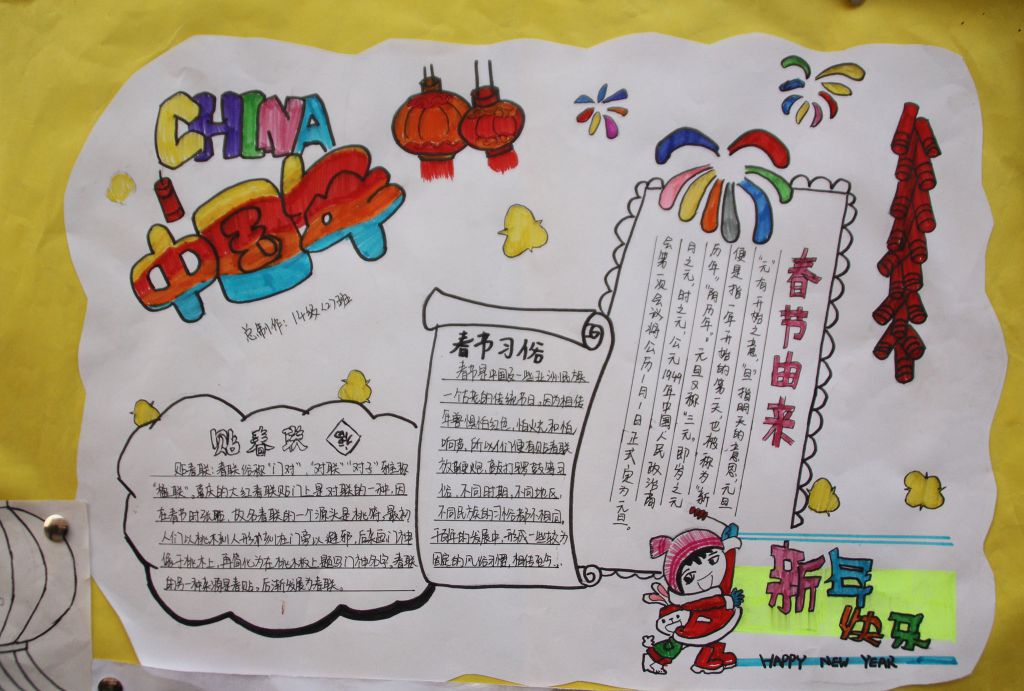 CHINA
中国年
总制作：14级(2)班
春节由来
"元"有开始之意，"旦"指明天的意思，元旦
便是指一年开始的第一天，也被称为"新
历年，"阳历年"。元旦又称"三元。即岁之元
日之元，时之元，公元1949年中国人民政治商
会第一次会议将公历1月1日正式定为元旦。
春节习俗
春节是中国及一些亚洲民族
一个古老的传统节日，因为相传
年兽惧怕红色，怕火，和怕
响声，所以人们便有贴春联
放鞭炮，敲打锣鼓等习
俗，不同时期，不同地区，
不同民族的习俗都不相同，
千百年的发展中，形成一些较为
固定的风俗习惯，相传至今。
贴春联
福
贴春联：春联俗称"门对"，"对联""对子"
"楹联"，喜庆的大红春联贴门上是对联的一种，因
在春节时张贴，故名春联的一个源头是桃符，最初
人们以桃木刻人形挂在门旁以避邪，后来画门神
像于桃木上，再简化为在桃木板上题写门神名字，春联
的另一种来源是春贴，后渐发展为春联。
新年
快乐
HAPPY NEW YEAR